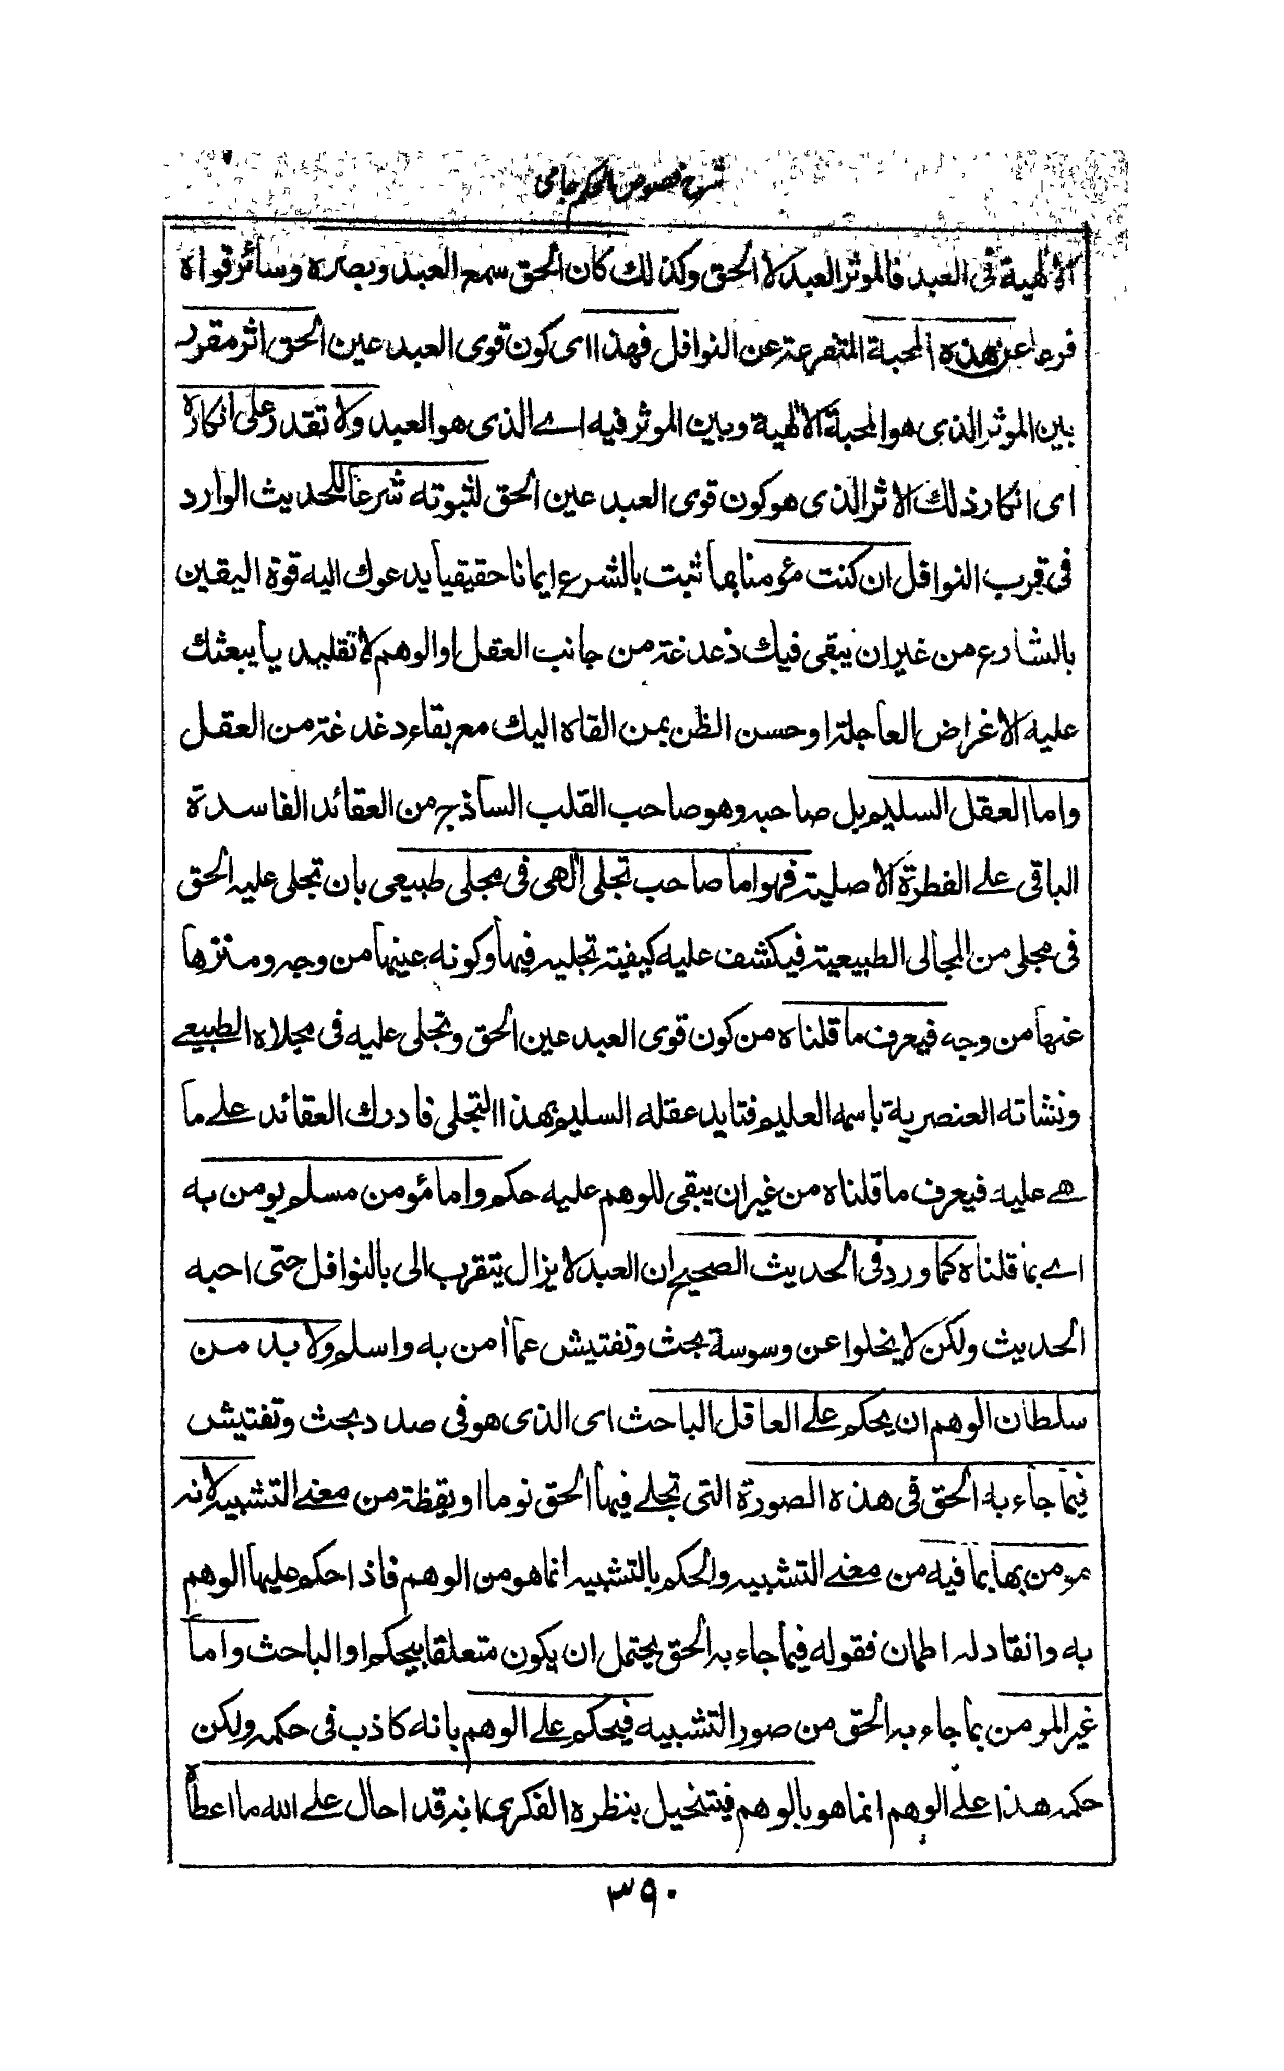 شرح فصوص الحكم جامى
الالهية فى العبد فالموثر العبد لا الحق وكذلك كان الحق سمع العبد وبصره وسائر قواه
فرعا عن هذه المحبة المتفرعة عن النوافل فهذا اى كون قوى العبد عين الحق اثر مقرر
بين الموثر الذى هو المحبة الالهية وبين الموثر فيه اے الذى هو العبد ولا تقدر على انكاره
اى انكار ذلك الاثر الذى هو كون قوى العبد عين الحق لثبوته شرعا للحديث الوارد
فى قرب النوافل ان كنت مؤمنا بما ثبت بالشرع ايمانا حقيقيا يدعوك اليه قوة اليقين
بالشارع من غير ان يبقى فيك ذعدغة من جانب العقل او الوهم لا تقليد يا يبعثك
عليه الاغراض العاجلة او حسن الظن بمن القاه اليك مع بقاء دغدغة من العقل
واما العقل السليم بل صاحبه وهو صاحب القلب الساذج من العقائد الفاسدة
الباقى علے الفطرة الاصلية فهو اما صاحب تجلى الهى فى مجلى طبيعى بان تجلى عليه الحق
فى مجلى من المجالى الطبيعية فيكشف عليه كيفية تجليه فيها وكونه عينها من وجه ومنزها
عنها من وجه فيعرف ما قلناه من كون قوى العبد عين الحق وتجلى عليه فى مجلاه الطبيعے
ونشاته العنصرية باسمه العليم فتايد عقله السليم بهذا التجلى فادرك العقائد علے ما
هے عليه فيعرف ما قلناه من غير ان يبقى للوهم عليه حكم واما مئومن مسلم يومن به
اے بما قلناه كما ورد فى الحديث الصحيح ان العبد لا يزال يتقرب الى بالنوافل حتى احبه
الحديث ولكن لا يخلوا عن وسوسة بحث وتفتيش عما امن به واسلم ولا بد من
سلطان الوهم ان يحكم علے العاقل الباحث اى الذى هو فى صدد بحث وتفتيش
فيما جاء به الحق فى هذه الصورة التى تجلے فيها الحق نوما او يقظة من معنے التشبيه لانه
مومن بها بما فيه من معنے التشبيه والحكم بالتشبيه انما هو من الوهم فاذا حكم عليها الوهم
به وانقاد له اطمان فقوله فيما جاء به الحق يحتمل ان يكون متعلقا بيحكم او الباحث واما
غير المومن بما جاء به الحق من صور التشبيه فيحكم علے الوهم بانه كاذب فى حكمه ولكن
حكمه هذا علے الوهم انما هو بالوهم فيتخيل بنظره الفكرى انه قد احال علے الله ما اعطاه
٣٩٠